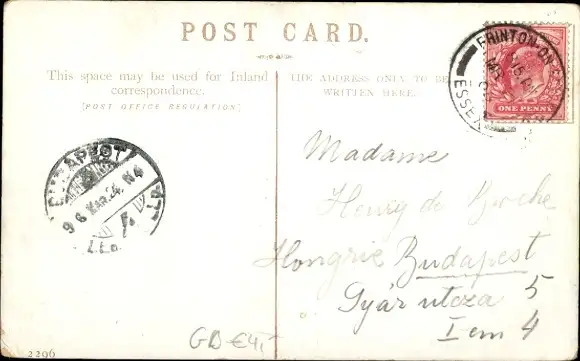 POST CARD.
This space may be used for Inland
correspondence.
(POST OFFICE REGULATION)
THE ADDRESS ONLY TO BE
WRITTEN HERE.
FRINTON-ON
ESSEX
ONE PENNY
BUDAPEST
Madame
Henry de
Hongrie Budapest
Gyár utcza 5
I em 4
GB €4,-
2296